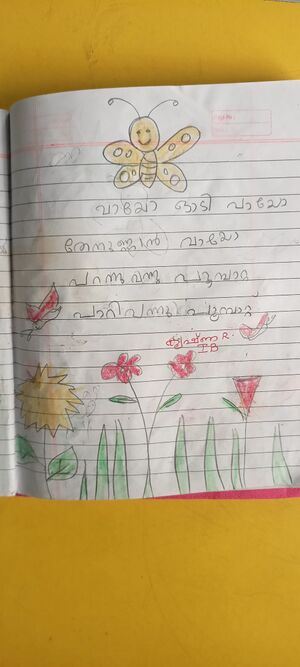 വായോ ഓടി വായോ
തേനുണ്ണാൻ വായോ
പറന്നു വന്നു പൂമ്പാറ്റ
പാറി വന്നു പൂമ്പാറ്റ
കൃഷ്ണ R.
I B